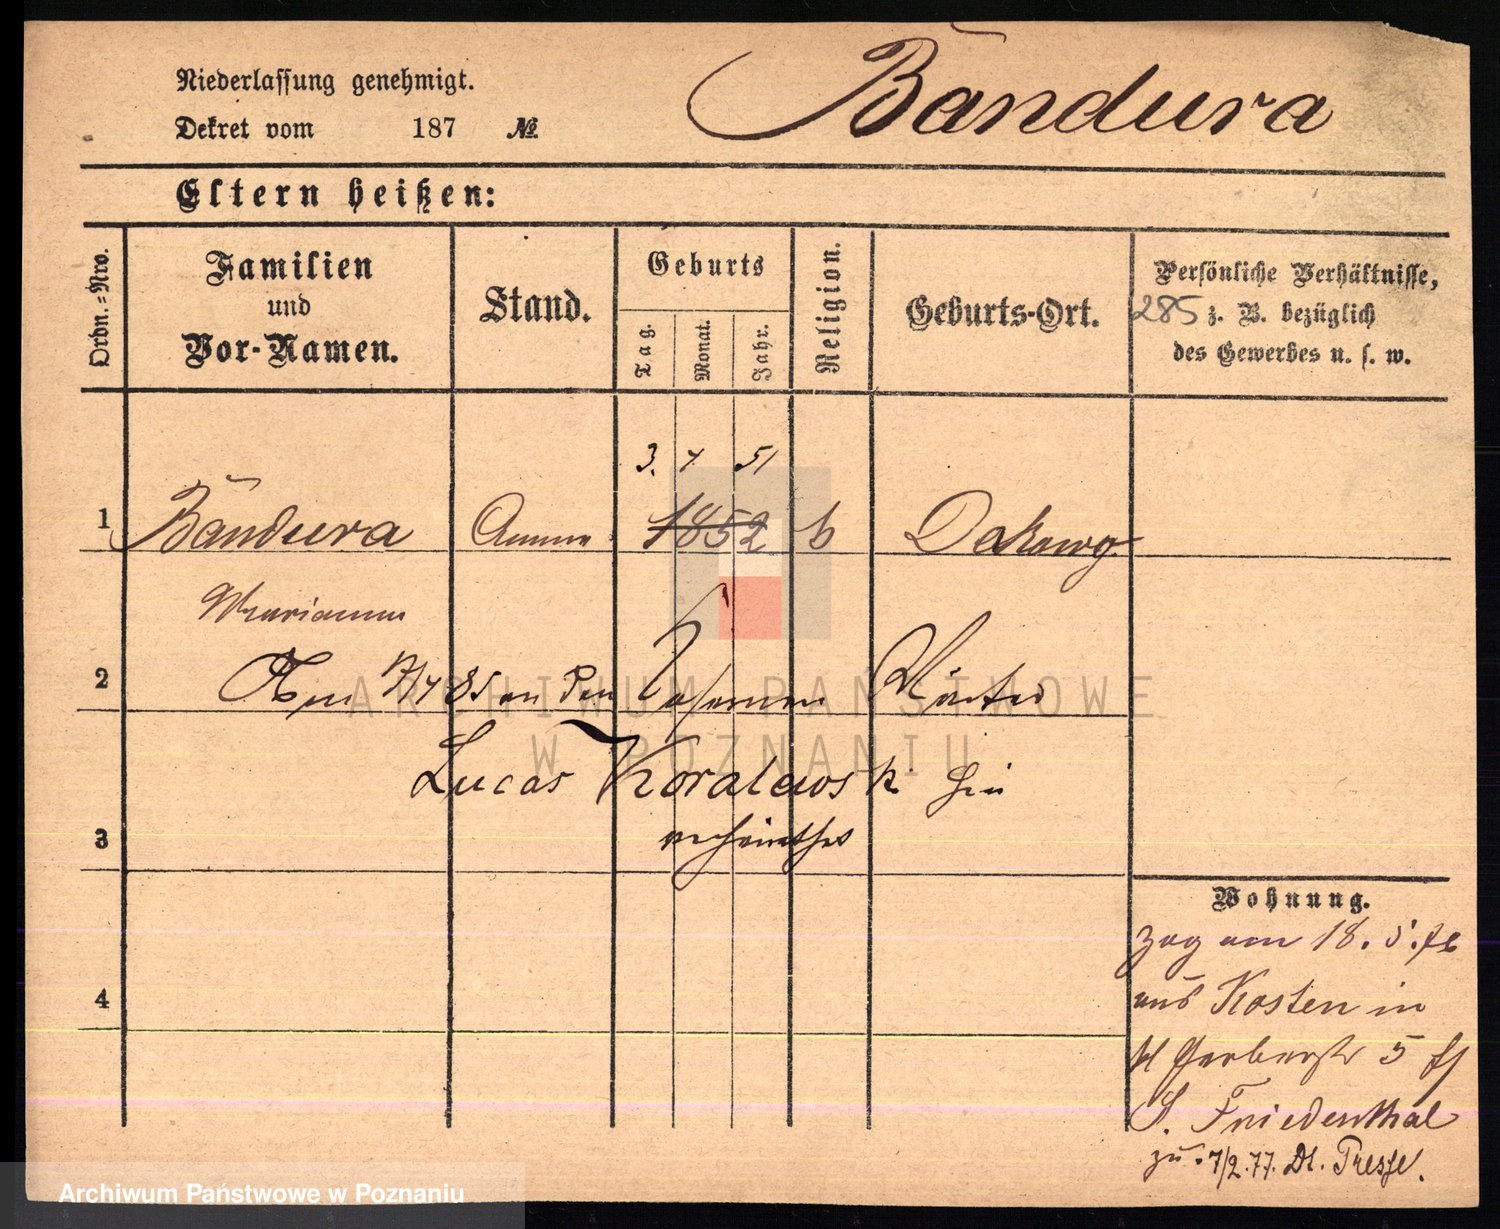 Bandura
Niederlassung genehmigt.
Dekret vom 187 №
Eltern heißen:
Ordn.-Nro.
Familien
und
Vor-Namen.
Stand.
Geburts
Tag.
Monat.
Jahr.
Religion.
Geburts-Ort.
Persönliche Verhältnisse,
285 z. B. bezüglich
des Gewerbes u. s. w.
3. 4 51
1 Bandura Amme 1852 k Dakowy
Marianna
2 Am 85 an den Wärter
Lucas Koralewski hier
3 verheirathet
Wohnung.
zog am 18. 5.
aus Kosten in
4
Gerberstr 5
S. Friedenthal
zu 7/2.77.
ARCHIWUM PAŃSTWOWE
W POZNANIU
Archiwum Państwowe w Poznaniu